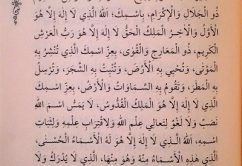 ذُو الْجَلَالِ وَالْإِكْرَامِ، بِاسْمِكَ: اللَّهُ الَّذِي لَا إِلَهَ إِلَّا هُوَ
الْأَوَّلُ وَالْآخِرُ الْمَلِكُ الْحَقُّ لَا إِلَهَ إِلَّا هُوَ رَبُّ الْعَرْشِ
الْكَرِيمِ، ذُو الْمَعَارِجِ وَالْقُوَى، بِعِزِّ اسْمِكَ الَّذِي تُنْشَرُ بِهِ
الْمَوْتَى، وَتُحْيِي بِهِ الْأَرْضَ، وَتُنْبِتُ بِهِ الشَّجَرَ، وَتُرْسِلُ
بِهِ الْمَطَرَ، وَتَقُومُ بِهِ السَّمَاوَاتُ وَالْأَرْضُ، بِعِزِّ اسْمِكَ
الَّذِي لَا إِلَهَ إِلَّا هُوَ الْمَلِكُ الْقُدُّوسُ، لَا يَمَسُّ اسْمَ اللهِ
نَصَبٌ وَلَا لُغُوبٌ تَعَالَى عِلْمُ اللهِ وَلِاقْتِرَابِ عِلْمِهِ وَلِثَبَاتِ
اسْمِهِ، اللهُ الَّذِي لَا إِلَهَ إِلَّا هُوَ لَهُ الْأَسْمَاءُ الْحُسْنَى،
هَذِهِ الْأَسْمَاءُ مِنْهُ وَهُوَ مِنْهَا، الَّذِي لَا يُدْرَكُ وَلَا